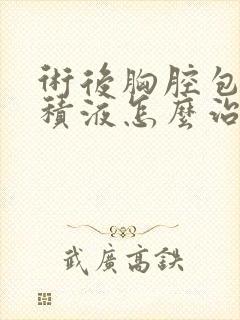 術後胸腔包
積液怎麼治
武廣高鉄